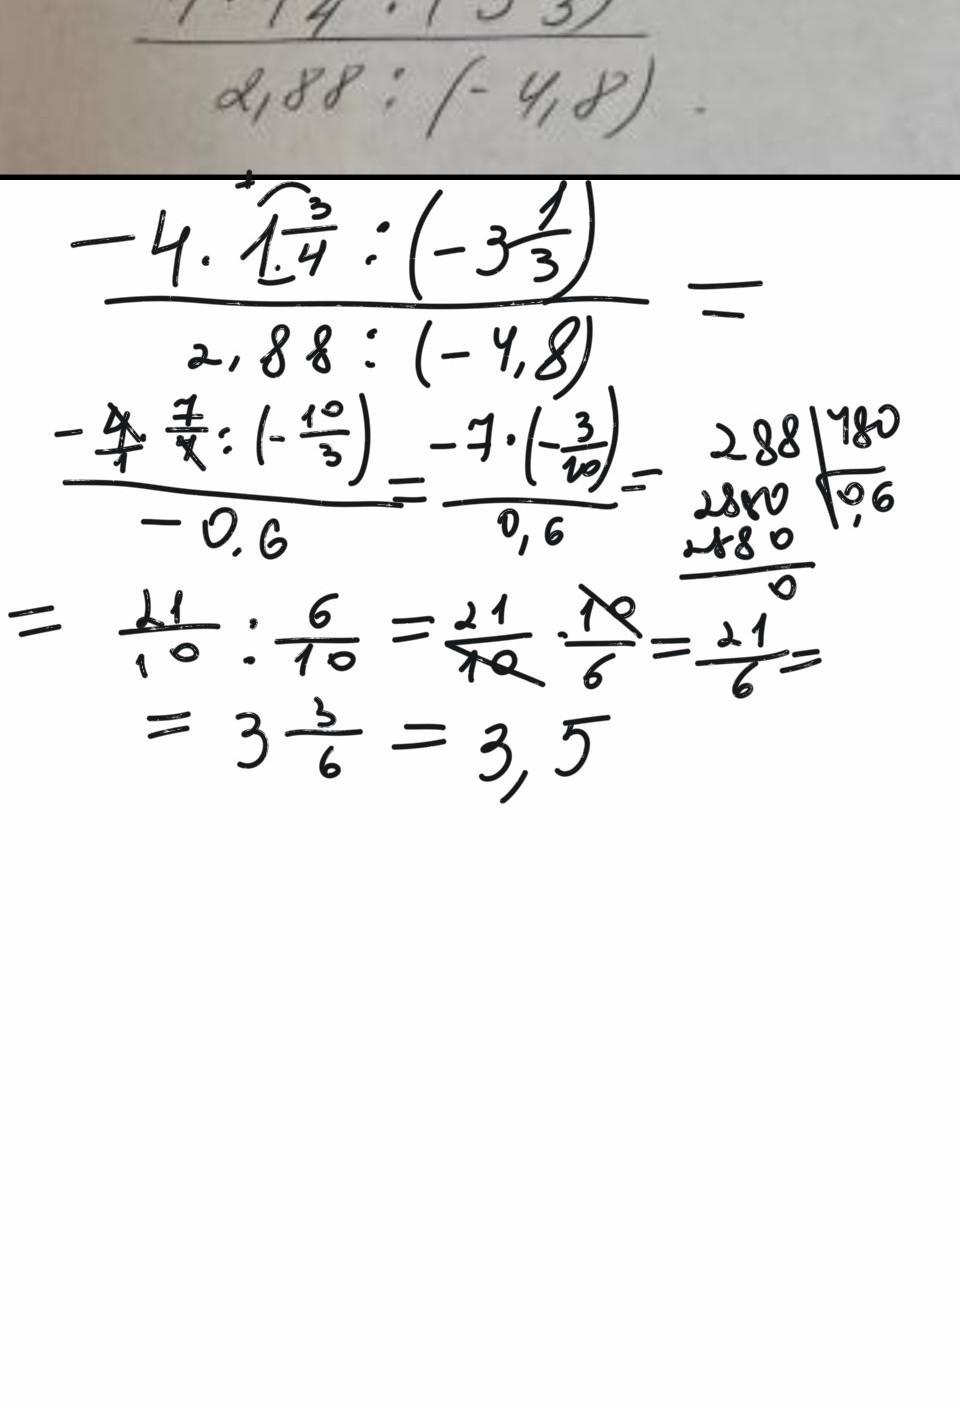 2,88 : (- 4,8) .
- 4 · 1 3/4 : (- 3 1/3)
2,88 : (- 4,8) =
- 4/1 · 7/4 : (- 10/3) = - 7 · (- 3/10) =
- 0,6 0,6
288 | 480
2880 0,6
2880
0
= 21/10 : 6/10 = 21/10 · 10/6 = 21/6 =
= 3 3/6 = 3,5